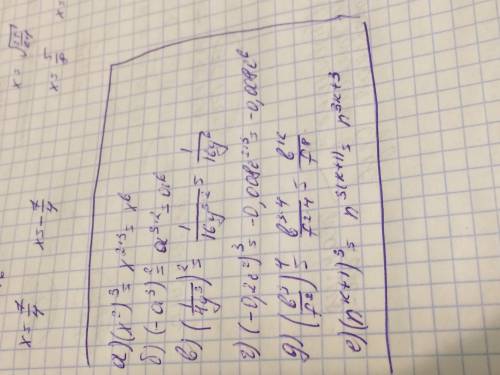 x = 7/4 x = -7/4
x = 5/8
а) (x²)³ = x^{2·3} = x⁶
б) (-a³)² = a^{3·2} = a⁶
в) (1/4y³)² = 1/16y^{3·2} = 1/16y⁶
г) (-0,2c²)³ = -0,008c^{2·3} = -0,008c⁶
д) (b³/c²)⁴ = b^{3·4}/c^{2·4} = b^{12}/c⁸
е) (n^{k+1})³ = n^{3(k+1)} = n^{3k+3}